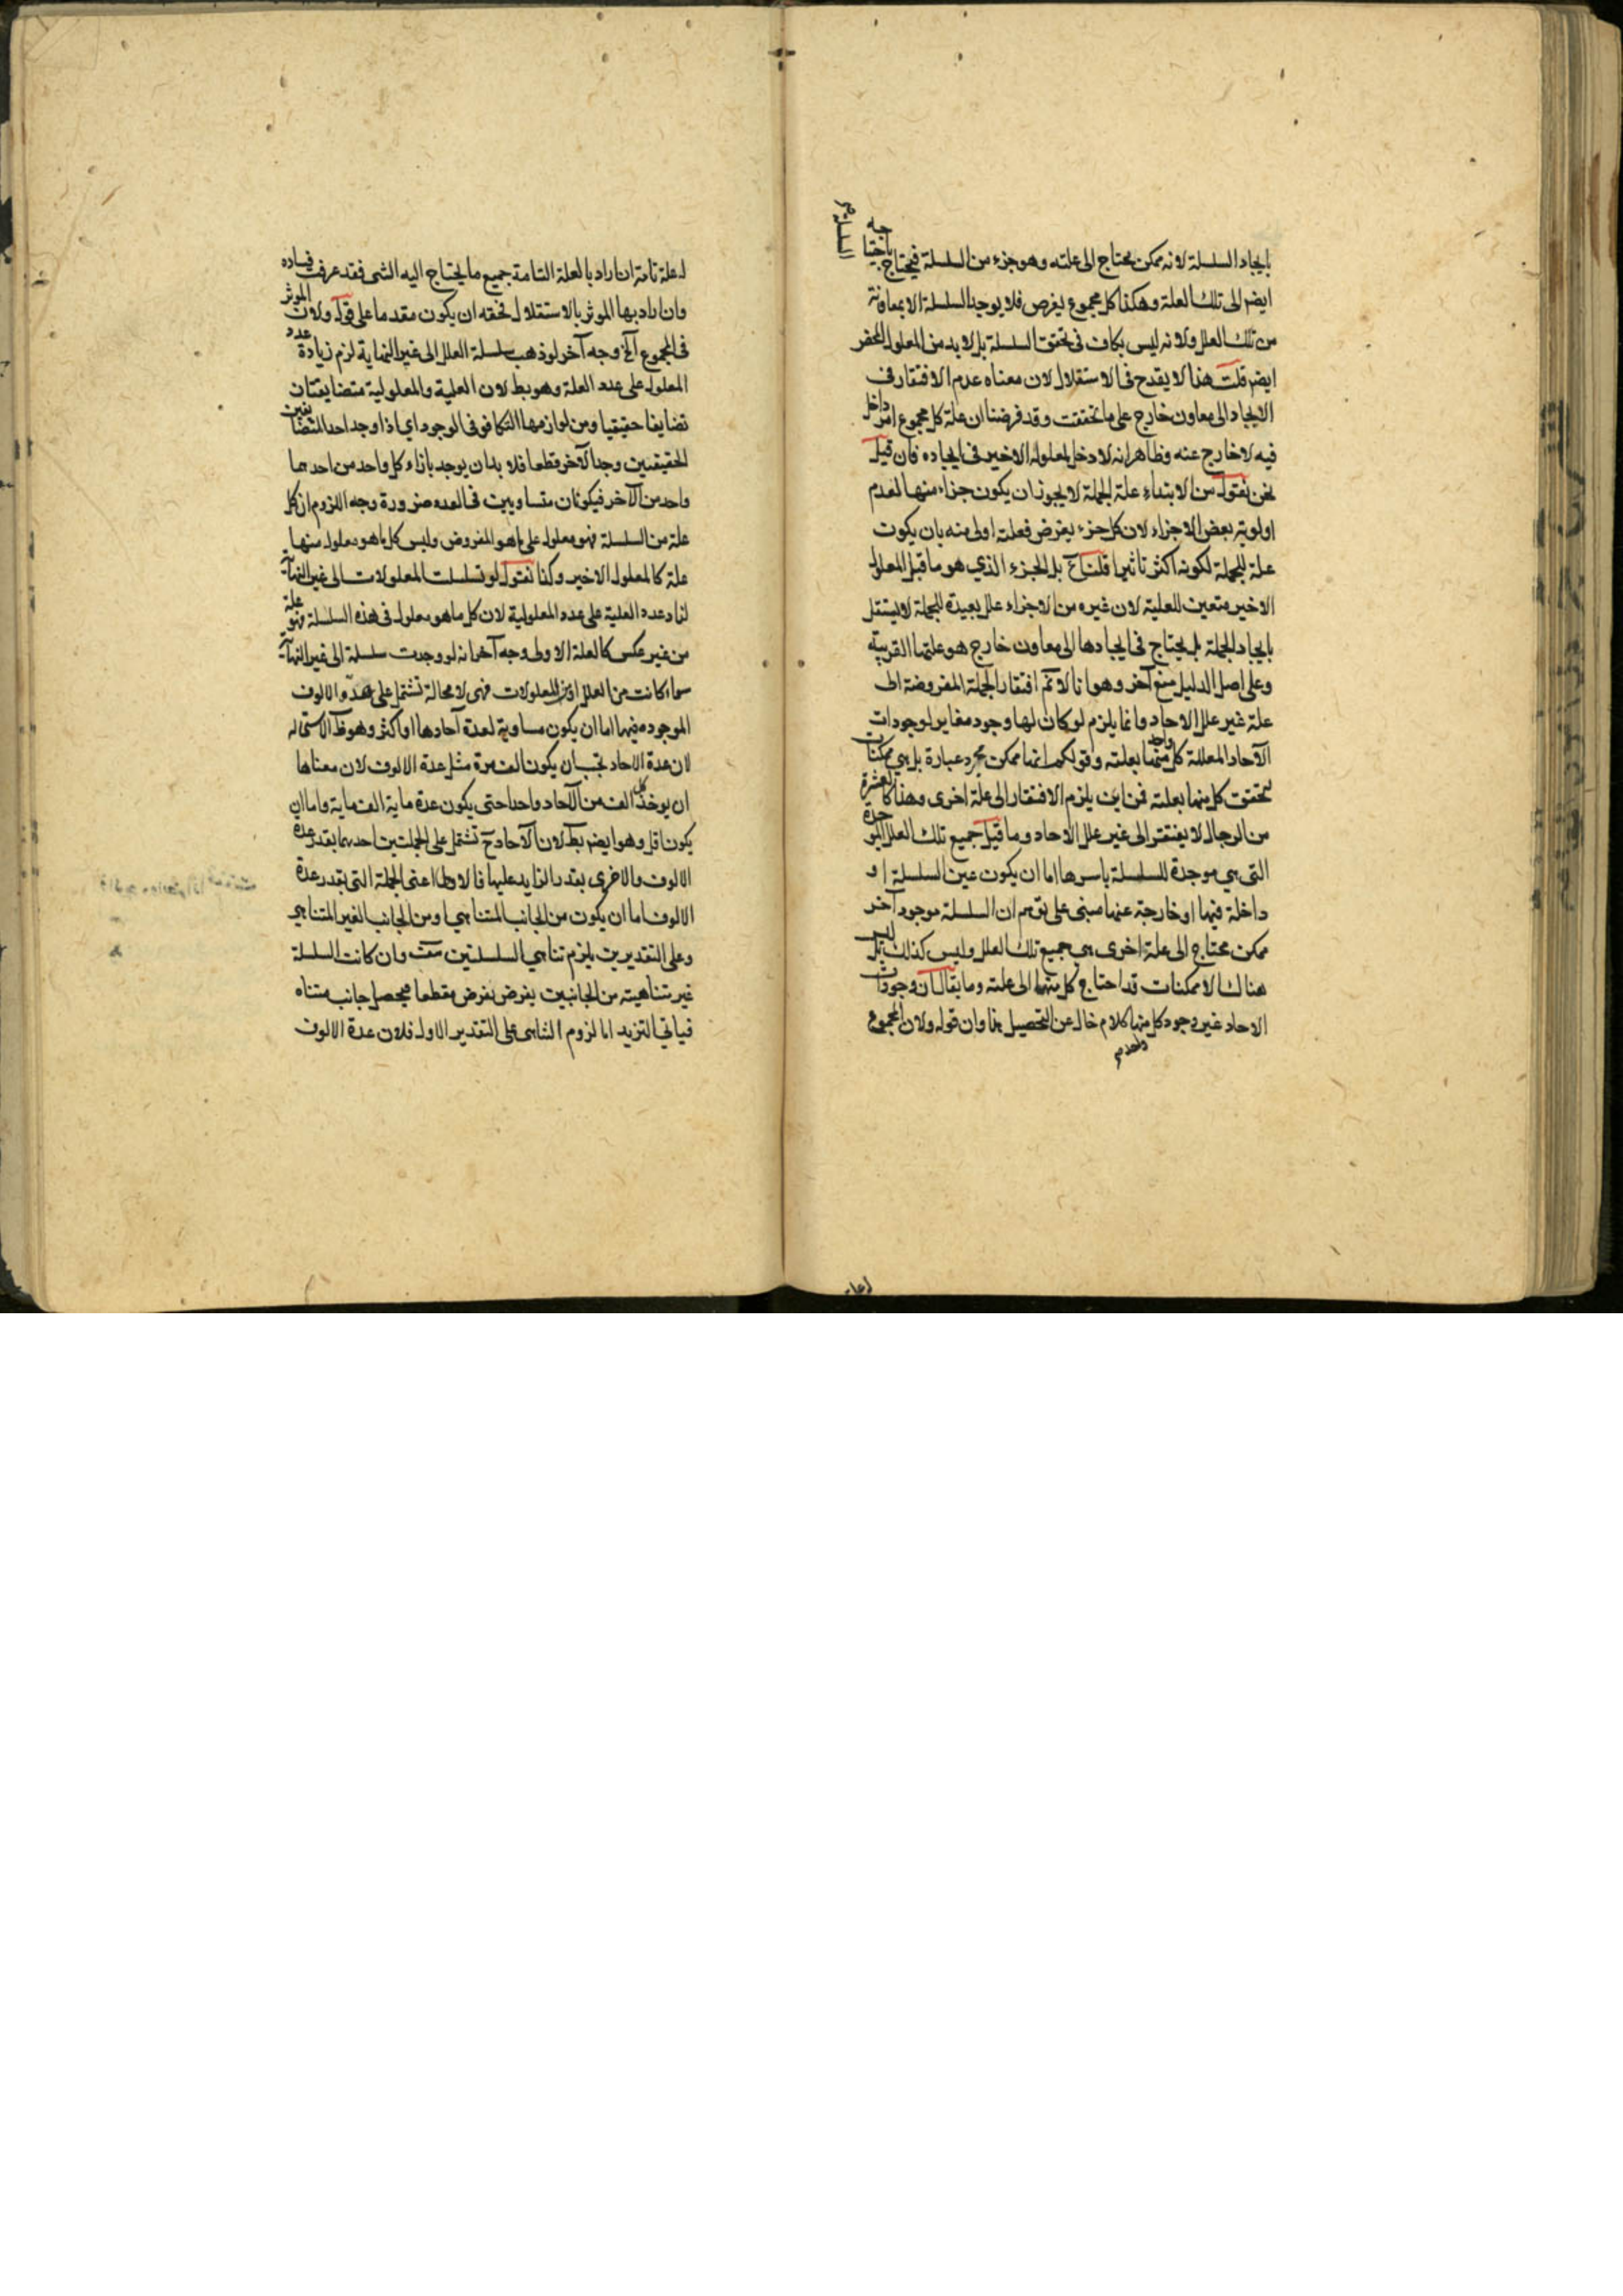 بايجاد السلسلة لانه ممكن يحتاج الى علته وهو جزء من السلسلة فيحتاج باحتياجه
السلسلة
ايضا الى تلك العلة وهكذا كل مجموع يفرض فلا يوجد السلسلة الا بمعاونة
من تلك العلل ولانه ليس بكاف فى تحقق السلسلة بل لا بد من المعلول المحض
ايضا قلت هذا لا يقدح فى الاستقلال لان معناه عدم الافتقار فى
الايجاد الى معاون خارج على ما تحققت وقد فرضنا ان علة كل مجموع امر داخل
فيه لا خارج عنه وظاهر انه لا دخل لمعلوله الاخير فى ايجاده فان قيل
نحن نقول من الابتداء علة الجملة لا يجوز ان يكون جزاء منها لعدم
اولوية بعض الاجزاء لان كل جزء يفرض فعلته اولى منه بان يكون
علة للجملة لكونه اكثر تاثيرا قلنا ح بل الجزء الذي هو ما قبل المعلول
الاخير متعين للعلية لان غيره من الاجزاء علل بعيدة للجملة لا يستقل
بايجاد الجملة بل يحتاج فى ايجادها الى معاون خارج هو علتها القريبة
وعلى اصل الدليل منع آخر وهو انا لا نم افتقار الجملة المفروضة الى
علة غير علل الاحاد وانما يلزم لو كان لها وجود مغاير لوجودات
الآحاد المعللة كل واحد منها بعلته وقولكم انها ممكن مجرد عبارة بل هي ممكنات
تحقق كل منها بعلته فمن اين يلزم الافتقار الى علة اخرى وهذا كالعشرة
من الرجال لا يفتقر الى غير علل الاحاد وما قيل جميع تلك العلل الموجدة
التى هي موجدة للسلسلة باسرها اما ان يكون عين السلسلة او
داخلة فيها او خارجة عنها مبنى على توهم ان السلسلة موجود آخر
ممكن محتاج الى علة اخرى هي جميع تلك العلل وليس كذلك بل ليس
هناك الا ممكنات قد احتاج كل منها الى علته وما يقال ان وجودات
الاحاد غير وجود كل منها كلام خال عن التحصيل هذا وان قوله ولان المجموع
واحد
له علة تامة ان اراد بالعلة التامة جميع ما يحتاج اليه الشى فقد عرفت فساده
وان اراد بها الموثر بالاستقلال فحقه ان يكون مقدما على قوله ولان الموثر
فى المجموع آلخ وجه آخر لو ذهب سلسلة العلل الى غير النهاية لزم زيادة عدد
المعلول على عدد العلة وهو بط لان العلية والمعلولية متضايفتان
تضايفا حقيقيا ومن لوازمها التكافو فى الوجود اي اذا وجد احد المتضايفين
الحقيقين وجد الآخر قطعا فلا بد ان يوجد بازاء كل واحد من احدهما
واحد من الآخر فيكونان متساويين فى العدد ضرورة وجه اللزوم ان كل
علة من السلسلة فهو معلول على ما هو المفروض وليس كل ما هو معلول منها
علة كالمعلول الاخير وكذا نقول لو تسلسلت المعلولات الى غير النهاية
لزاد عدد العلية على عدد المعلولية لان كل ما هو معلول فى هذه السلسلة فهو علة
من غير عكس كالعلة الاولى وجه آخر انه لو وجدت سلسلة الى غير النهاية
سواء كانت من العلل او من المعلولات فهى لا محالة تشتمل على عدة الالوف
الموجودة فيها اما ان يكون مساوية لعدة آحادها او اكثر وهو ظ الاستحالة
لان عدة الاحاد تجب ان يكون الف مرة مثل عدة الالوف لان معناها
ان يوخذ كل الف من الآحاد واحدا حتى يكون عدة ماية الف ماية واما ان
يكون اقل وهو ايضا بط لان الآحاد ح تشتمل على الجملتين احدهما بقدر عدة
الالوف والاخرى بقدر الزايد عليها فالاولى اعنى الجملة التى بقدر عدة
الالوف اما ان يكون من الجانب المتناهي او من الجانب الغير المتناهي
وعلى التقديرين يلزم تناهي السلسلتين وان كانت السلسلة
غير متناهية من الجانبين يفرض مقطعا فيحصل جانب متناه
فياتي الترديد اما لزوم التناهى على التقدير الاول فلان عدة الالوف